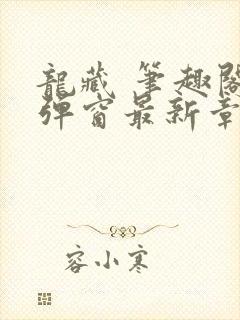 龍藏 筆趣閣
彈窗最新章
容小寒